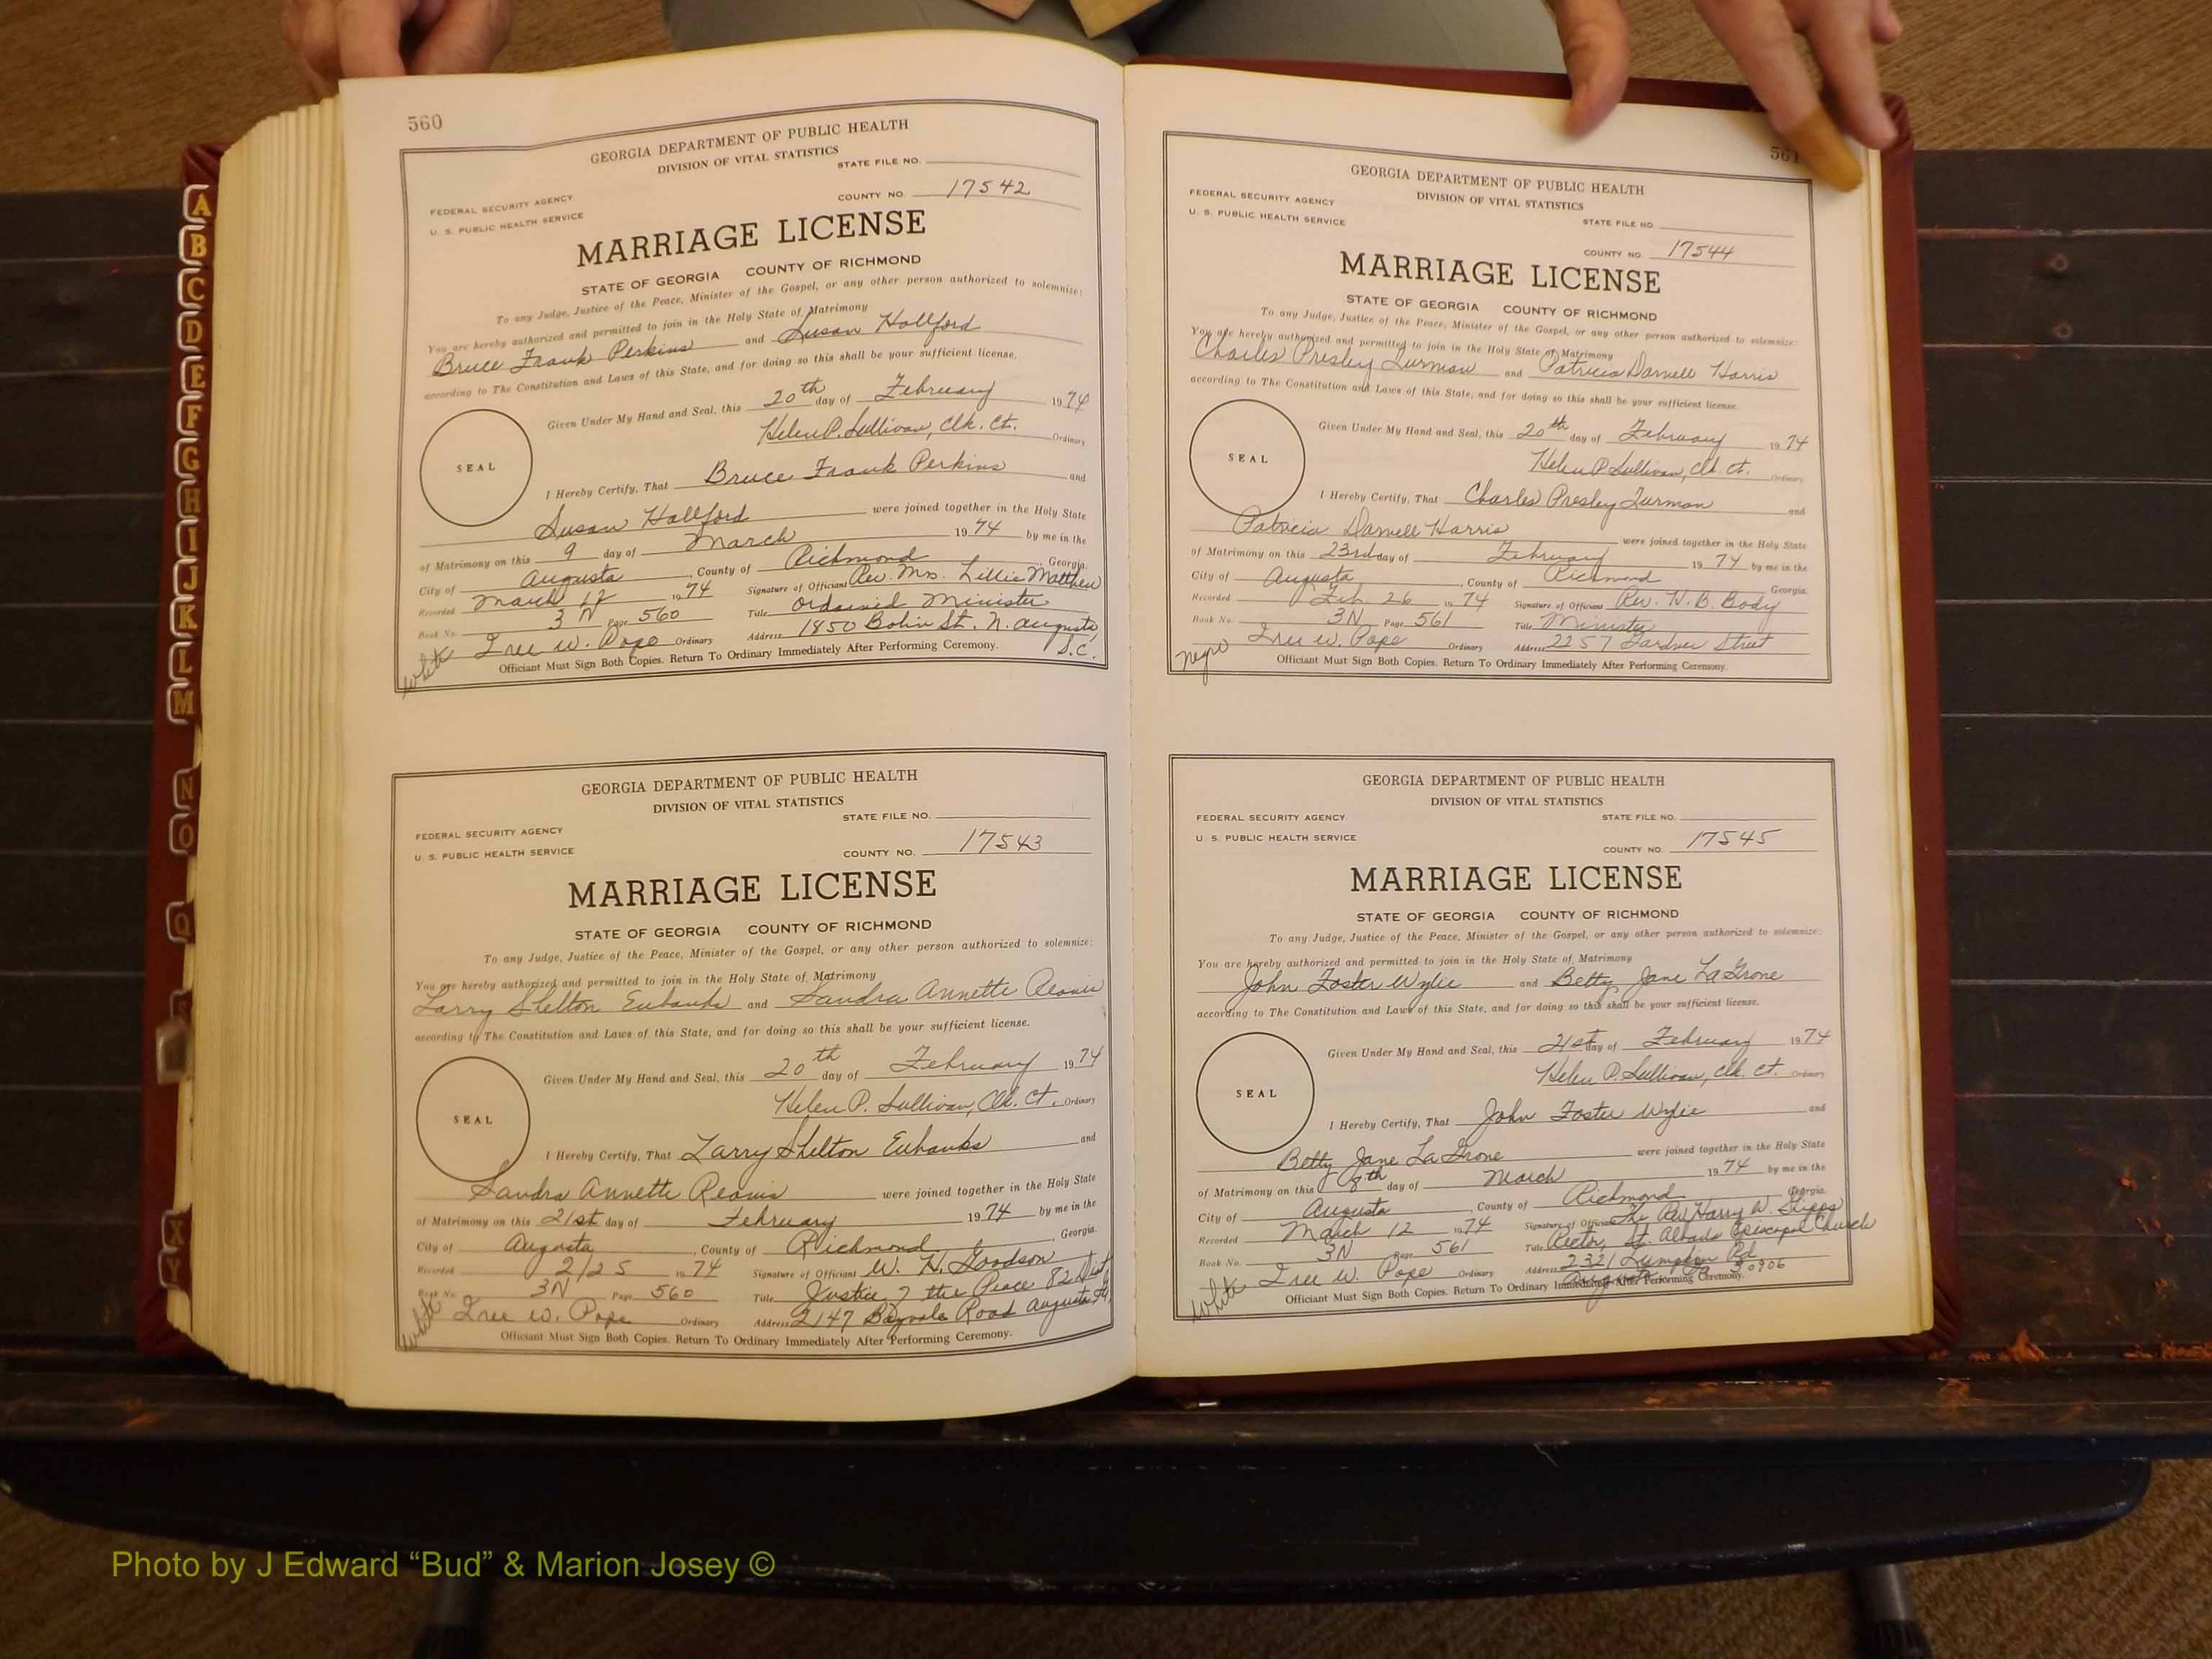 A
B
C
D
E
F
G
H
I
J
K
L
M
N
O
Q
X
Y
560
GEORGIA DEPARTMENT OF PUBLIC HEALTH
DIVISION OF VITAL STATISTICS
STATE FILE NO.
FEDERAL SECURITY AGENCY
U. S. PUBLIC HEALTH SERVICE
COUNTY NO. 17542
MARRIAGE LICENSE
STATE OF GEORGIA COUNTY OF RICHMOND
To any Judge, Justice of the Peace, Minister of the Gospel, or any other person authorized to solemnize:
You are hereby authorized and permitted to join in the Holy State of Matrimony
Bruce Frank Perkins and Susan Hallford
according to The Constitution and Laws of this State, and for doing so this shall be your sufficient license.
Given Under My Hand and Seal, this 20th day of February 1974
Helen P. Sullivan, Clk. Ct. Ordinary
SEAL
I Hereby Certify, That Bruce Frank Perkins and
Susan Hallford were joined together in the Holy State
of Matrimony on this 9 day of March 1974 by me in the
City of Augusta, County of Richmond, Georgia.
Recorded March 12 1974 Signature of Officiant Rev. Mrs. Lillie Matthew
Book No. 3 N Page 560 Title Ordained Minister
white Ordinary Address 1850 Bolin St. N. Augusta, S.C.
Officiant Must Sign Both Copies. Return To Ordinary Immediately After Performing Ceremony.
GEORGIA DEPARTMENT OF PUBLIC HEALTH
DIVISION OF VITAL STATISTICS
STATE FILE NO.
FEDERAL SECURITY AGENCY
U. S. PUBLIC HEALTH SERVICE
COUNTY NO. 17543
MARRIAGE LICENSE
STATE OF GEORGIA COUNTY OF RICHMOND
To any Judge, Justice of the Peace, Minister of the Gospel, or any other person authorized to solemnize:
You are hereby authorized and permitted to join in the Holy State of Matrimony
Larry Shelton Eubanks and Sandra Annette
according to The Constitution and Laws of this State, and for doing so this shall be your sufficient license.
Given Under My Hand and Seal, this 20th day of February 1974
Helen P. Sullivan, Clk. Ct. Ordinary
SEAL
I Hereby Certify, That Larry Shelton Eubanks and
Sandra Annette were joined together in the Holy State
of Matrimony on this 21st day of February 1974 by me in the
City of Augusta, County of Richmond, Georgia.
Recorded 2/25 1974 Signature of Officiant W. H. Goodson
Book No. 3N Page 560 Title Justice of the Peace 82 Dist
white Ordinary Address 2147 Road Augusta Ga,
Officiant Must Sign Both Copies. Return To Ordinary Immediately After Performing Ceremony.
561
GEORGIA DEPARTMENT OF PUBLIC HEALTH
DIVISION OF VITAL STATISTICS
FEDERAL SECURITY AGENCY
U. S. PUBLIC HEALTH SERVICE
STATE FILE NO
COUNTY NO. 17544
MARRIAGE LICENSE
STATE OF GEORGIA COUNTY OF RICHMOND
To any Judge, Justice of the Peace, Minister of the Gospel, or any other person authorized to solemnize:
You are hereby authorized and permitted to join in the Holy State of Matrimony
Charles Presley Turman and Patricia Darnell Harris
according to The Constitution and Laws of this State, and for doing so this shall be your sufficient license.
Given Under My Hand and Seal, this 20th day of February 1974
Helen P. Sullivan, Clk. Ct. Ordinary
SEAL
I Hereby Certify, That Charles Presley Turman and
Patricia Darnell Harris were joined together in the Holy State
of Matrimony on this 23rd day of February 1974 by me in the
City of Augusta, County of Richmond Georgia.
Recorded Feb. 26 1974 Signature of Officiant Rev. H. B. Body
Book No. 3N Page 561 Title Minister
negro Ordinary Address 2257 Gardner Street
Officiant Must Sign Both Copies. Return To Ordinary Immediately After Performing Ceremony.
GEORGIA DEPARTMENT OF PUBLIC HEALTH
DIVISION OF VITAL STATISTICS
FEDERAL SECURITY AGENCY
STATE FILE NO.
U. S. PUBLIC HEALTH SERVICE
COUNTY NO. 17545
MARRIAGE LICENSE
STATE OF GEORGIA COUNTY OF RICHMOND
To any Judge, Justice of the Peace, Minister of the Gospel, or any other person authorized to solemnize:
You are hereby authorized and permitted to join in the Holy State of Matrimony
John Foster Wylie and Betty Jane LaGrone
according to The Constitution and Laws of this State, and for doing so this shall be your sufficient license.
Given Under My Hand and Seal, this 21st day of February 1974
Helen P. Sullivan, Clk. Ct. Ordinary
SEAL
I Hereby Certify, That John Foster Wylie and
Betty Jane LaGrone were joined together in the Holy State
of Matrimony on this 8th day of March 1974 by me in the
City of Augusta, County of Richmond Georgia.
Recorded March 12 1974 Signature of Officiant The Rev Harry W. Shipps
Book No. 3N Page 561 Title Rector, St. Albans Episcopal Church
white Ordinary Address 2321 Lumpkin Rd
Augusta, Ga 30906
Officiant Must Sign Both Copies. Return To Ordinary Immediately After Performing Ceremony.
Photo by J Edward “Bud” & Marion Josey ©